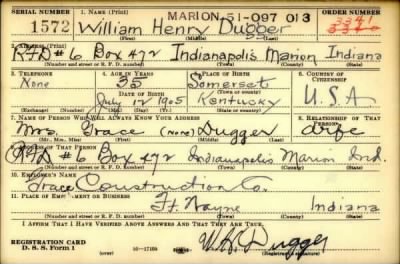 SERIAL NUMBER 1. NAME (Print) MARION 51-097 013 ORDER NUMBER
1572 William Henry Dugger 3341
(First) (Middle) (Last)
2. ADDRESS (Print)
RFD #6 Box 472 Indianapolis Marion Indiana
(Number and street or R. F. D. number) (Town) (County) (State)
3. TELEPHONE 4. AGE IN YEARS 5. PLACE OF BIRTH 6. COUNTRY OF CITIZENSHIP
None 35 Somerset
DATE OF BIRTH (Town or county)
July 12 1905 Kentucky U.S.A
(Exchange) (Number) (Mo.) (Day) (Yr.) (State or country)
7. NAME OF PERSON WHO WILL ALWAYS KNOW YOUR ADDRESS 8. RELATIONSHIP OF THAT PERSON
Mrs. Grace (None) Dugger Wife
(Mr., Mrs., Miss) (First) (Middle) (Last)
9. ADDRESS OF THAT PERSON
RFD #6 Box 472 Indianapolis Marion Ind.
(Number and street or R. F. D. number) (Town) (County) (State)
10. EMPLOYER'S NAME
Grace Construction Co.
11. PLACE OF EMPLOYMENT OR BUSINESS
Ft. Wayne Indiana
(Number and street or R. F. D. number) (Town) (County) (State)
I AFFIRM THAT I HAVE VERIFIED ABOVE ANSWERS AND THAT THEY ARE TRUE.
REGISTRATION CARD
D. S. S. Form 1 16-17105 W H Dugger
(Registrant's signature)